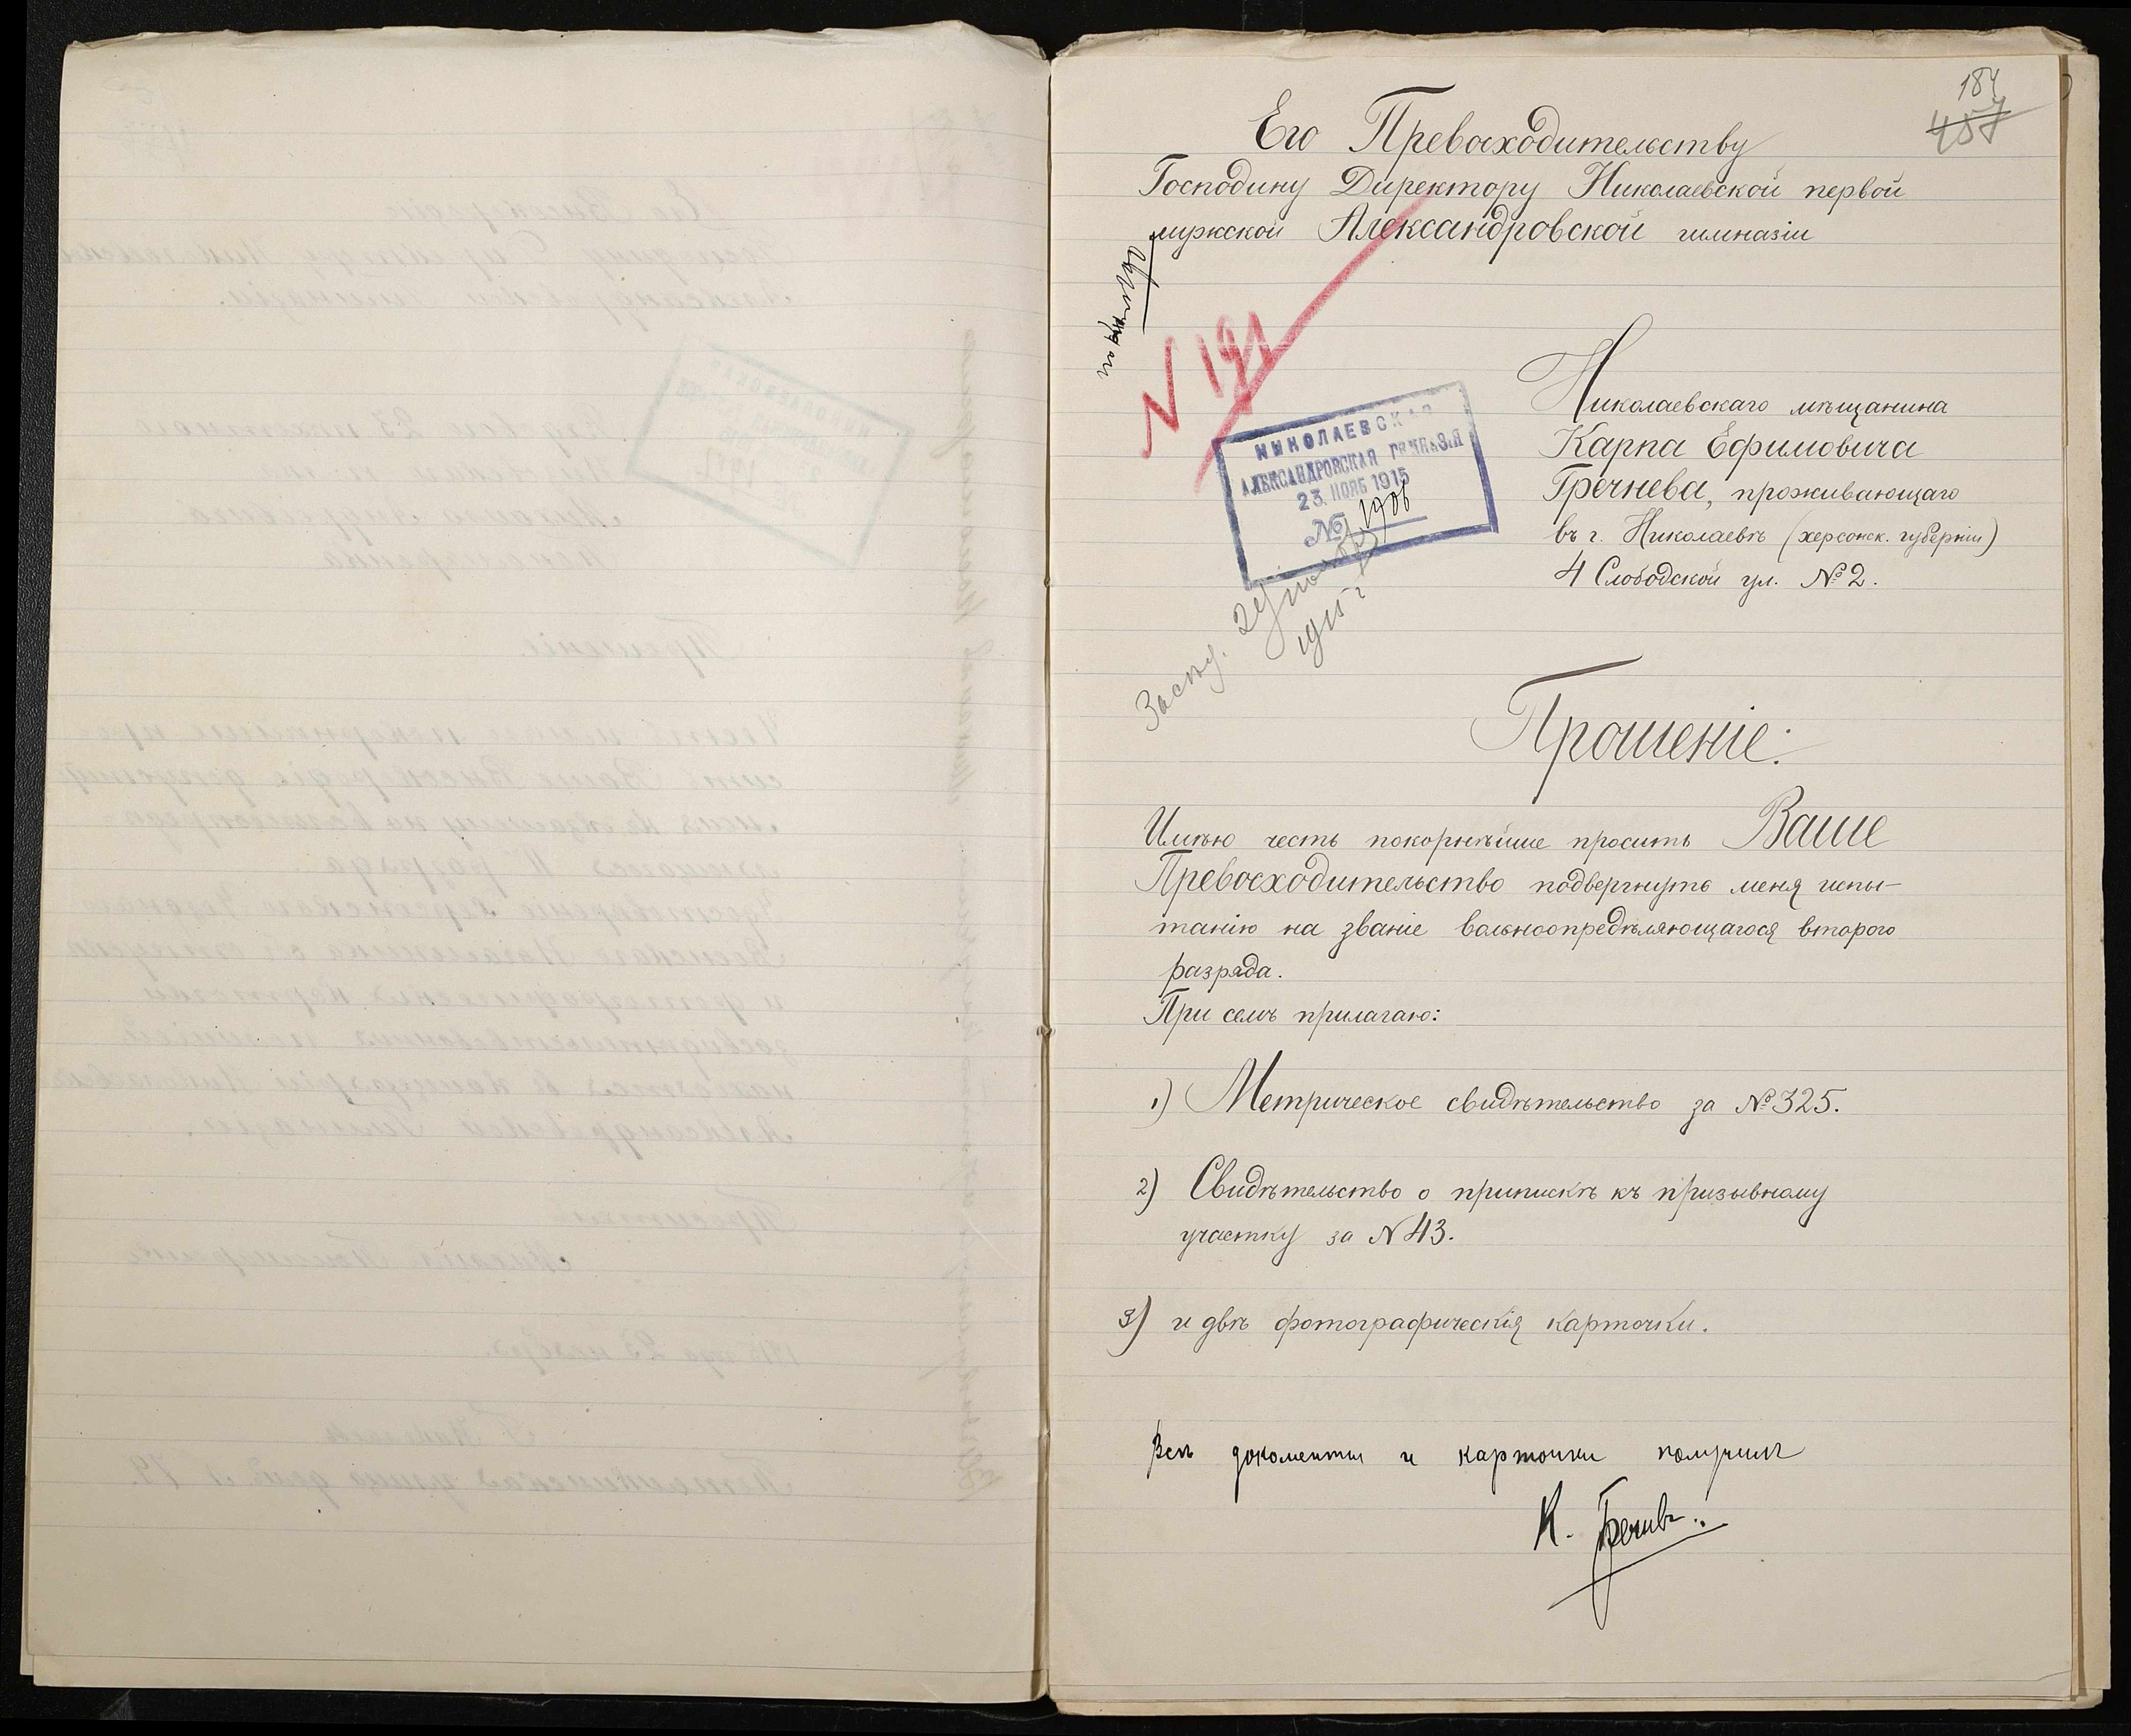 184
457
Его Превосходительству
Господину Директору Николаевской первой
мужской Александровской гимназіи
N 191
НИКОЛАЕВСКАЯ
АЛЕКСАНДРОВСКАЯ ГИМНАЗІЯ
23. НОЯБ 1915
№ 1906
1915 г
Николаевскаго мѣщанина
Карпа Ефимовича
Гречнева, проживающаго
въ г. Николаевѣ (херсонск. губерніи)
4 Слободской ул. № 2.
Прошеніе:
Имѣю честь покорнѣйше просить Ваше
Превосходительство подвергнуть меня испы-
танію на званіе вольноопредѣляющагося второго
разряда.
При семъ прилагаю:
1) Метрическое свидѣтельство за № 325.
2) Свидѣтельство о припискѣ къ призывному
участку за N 43.
3) и двѣ фотографическія карточки.
Всѣ документы и карточки получилъ
К. Гречневъ